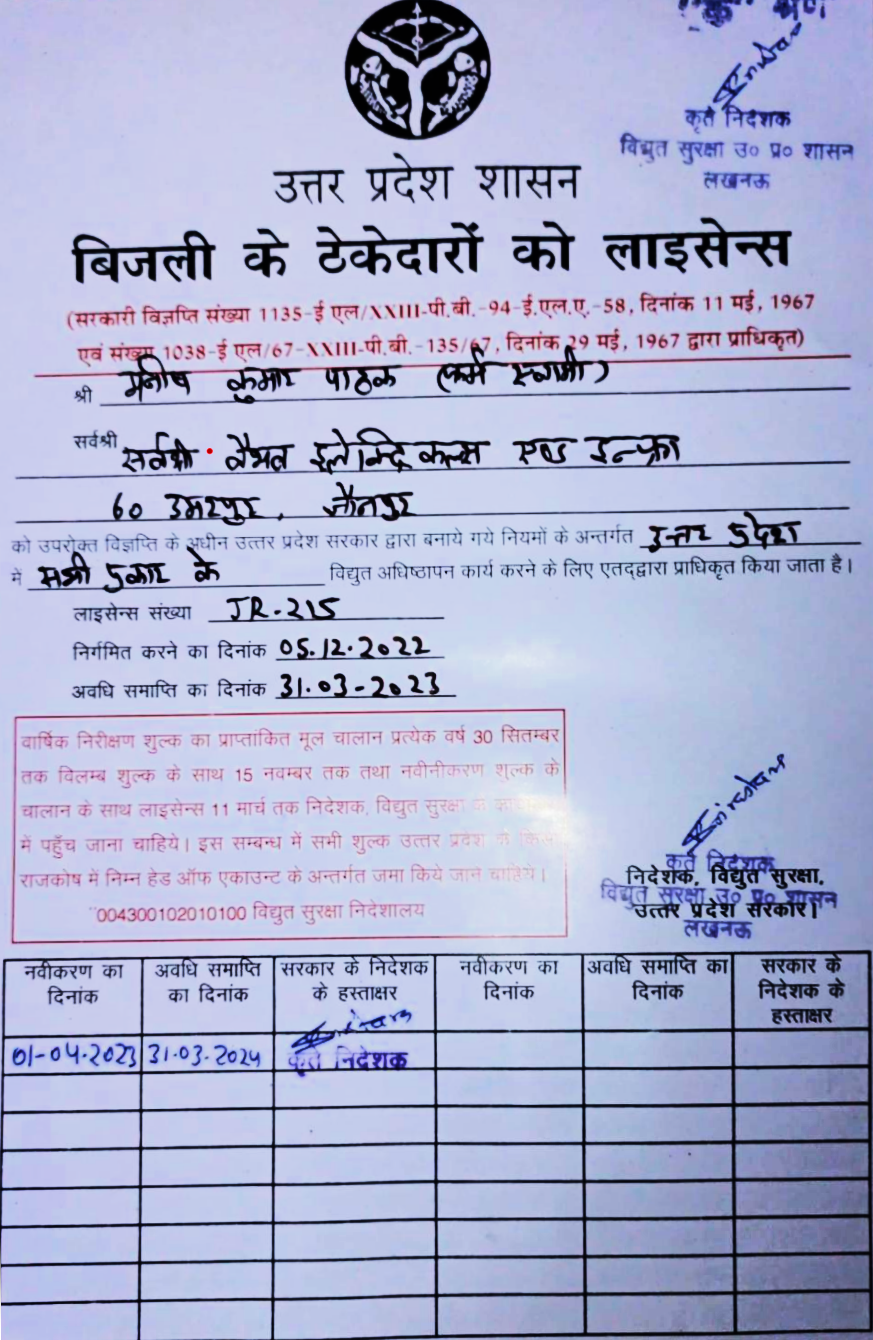 कृते निदेशक
विद्युत सुरक्षा उ० प्र० शासन
लखनऊ
उत्तर प्रदेश शासन
बिजली के ठेकेदारों को लाइसेन्स
(सरकारी विज्ञप्ति संख्या 1135-ई एल/XXIII-पी.बी.-94-ई.एल.ए.-58, दिनांक 11 मई, 1967
एवं संख्या 1038-ई एल/67-XXIII-पी.बी.-135/67, दिनांक 29 मई, 1967 द्वारा प्राधिकृत)
श्री मनीष कुमार पाठक (फर्म स्वामी)
सर्वश्री सर्वश्री वैभव इलेक्ट्रिकल्स एण्ड इन्फ्रा
60 उमरपुर, जौनपुर
को उपरोक्त विज्ञप्ति के अधीन उत्तर प्रदेश सरकार द्वारा बनाये गये नियमों के अन्तर्गत उत्तर प्रदेश
में सभी प्रकार के विद्युत अधिष्ठापन कार्य करने के लिए एतद्द्वारा प्राधिकृत किया जाता है।
लाइसेन्स संख्या JR-215
निर्गमित करने का दिनांक 05.12.2022
अवधि समाप्ति का दिनांक 31.03-2023
वार्षिक निरीक्षण शुल्क का प्राप्तांकित मूल चालान प्रत्येक वर्ष 30 सितम्बर
तक विलम्ब शुल्क के साथ 15 नवम्बर तक तथा नवीनीकरण शुल्क के
चालान के साथ लाइसेन्स 11 मार्च तक निदेशक, विद्युत सुरक्षा के
में पहुँच जाना चाहिये। इस सम्बन्ध में सभी शुल्क उत्तर प्रदेश के
राजकोष में निम्न हेड ऑफ एकाउन्ट के अन्तर्गत जमा किये जाने चाहिये।
004300102010100 विद्युत सुरक्षा निदेशालय
कृते निदेशक
निदेशक, विद्युत सुरक्षा,
विद्युत सुरक्षा उ० प्र० शासन
उत्तर प्रदेश सरकार।
लखनऊ
नवीकरण का दिनांक अवधि समाप्ति का दिनांक सरकार के निदेशक के हस्ताक्षर नवीकरण का दिनांक अवधि समाप्ति का दिनांक सरकार के निदेशक के हस्ताक्षर
01-04-2023 31.03.2024 कृते निदेशक